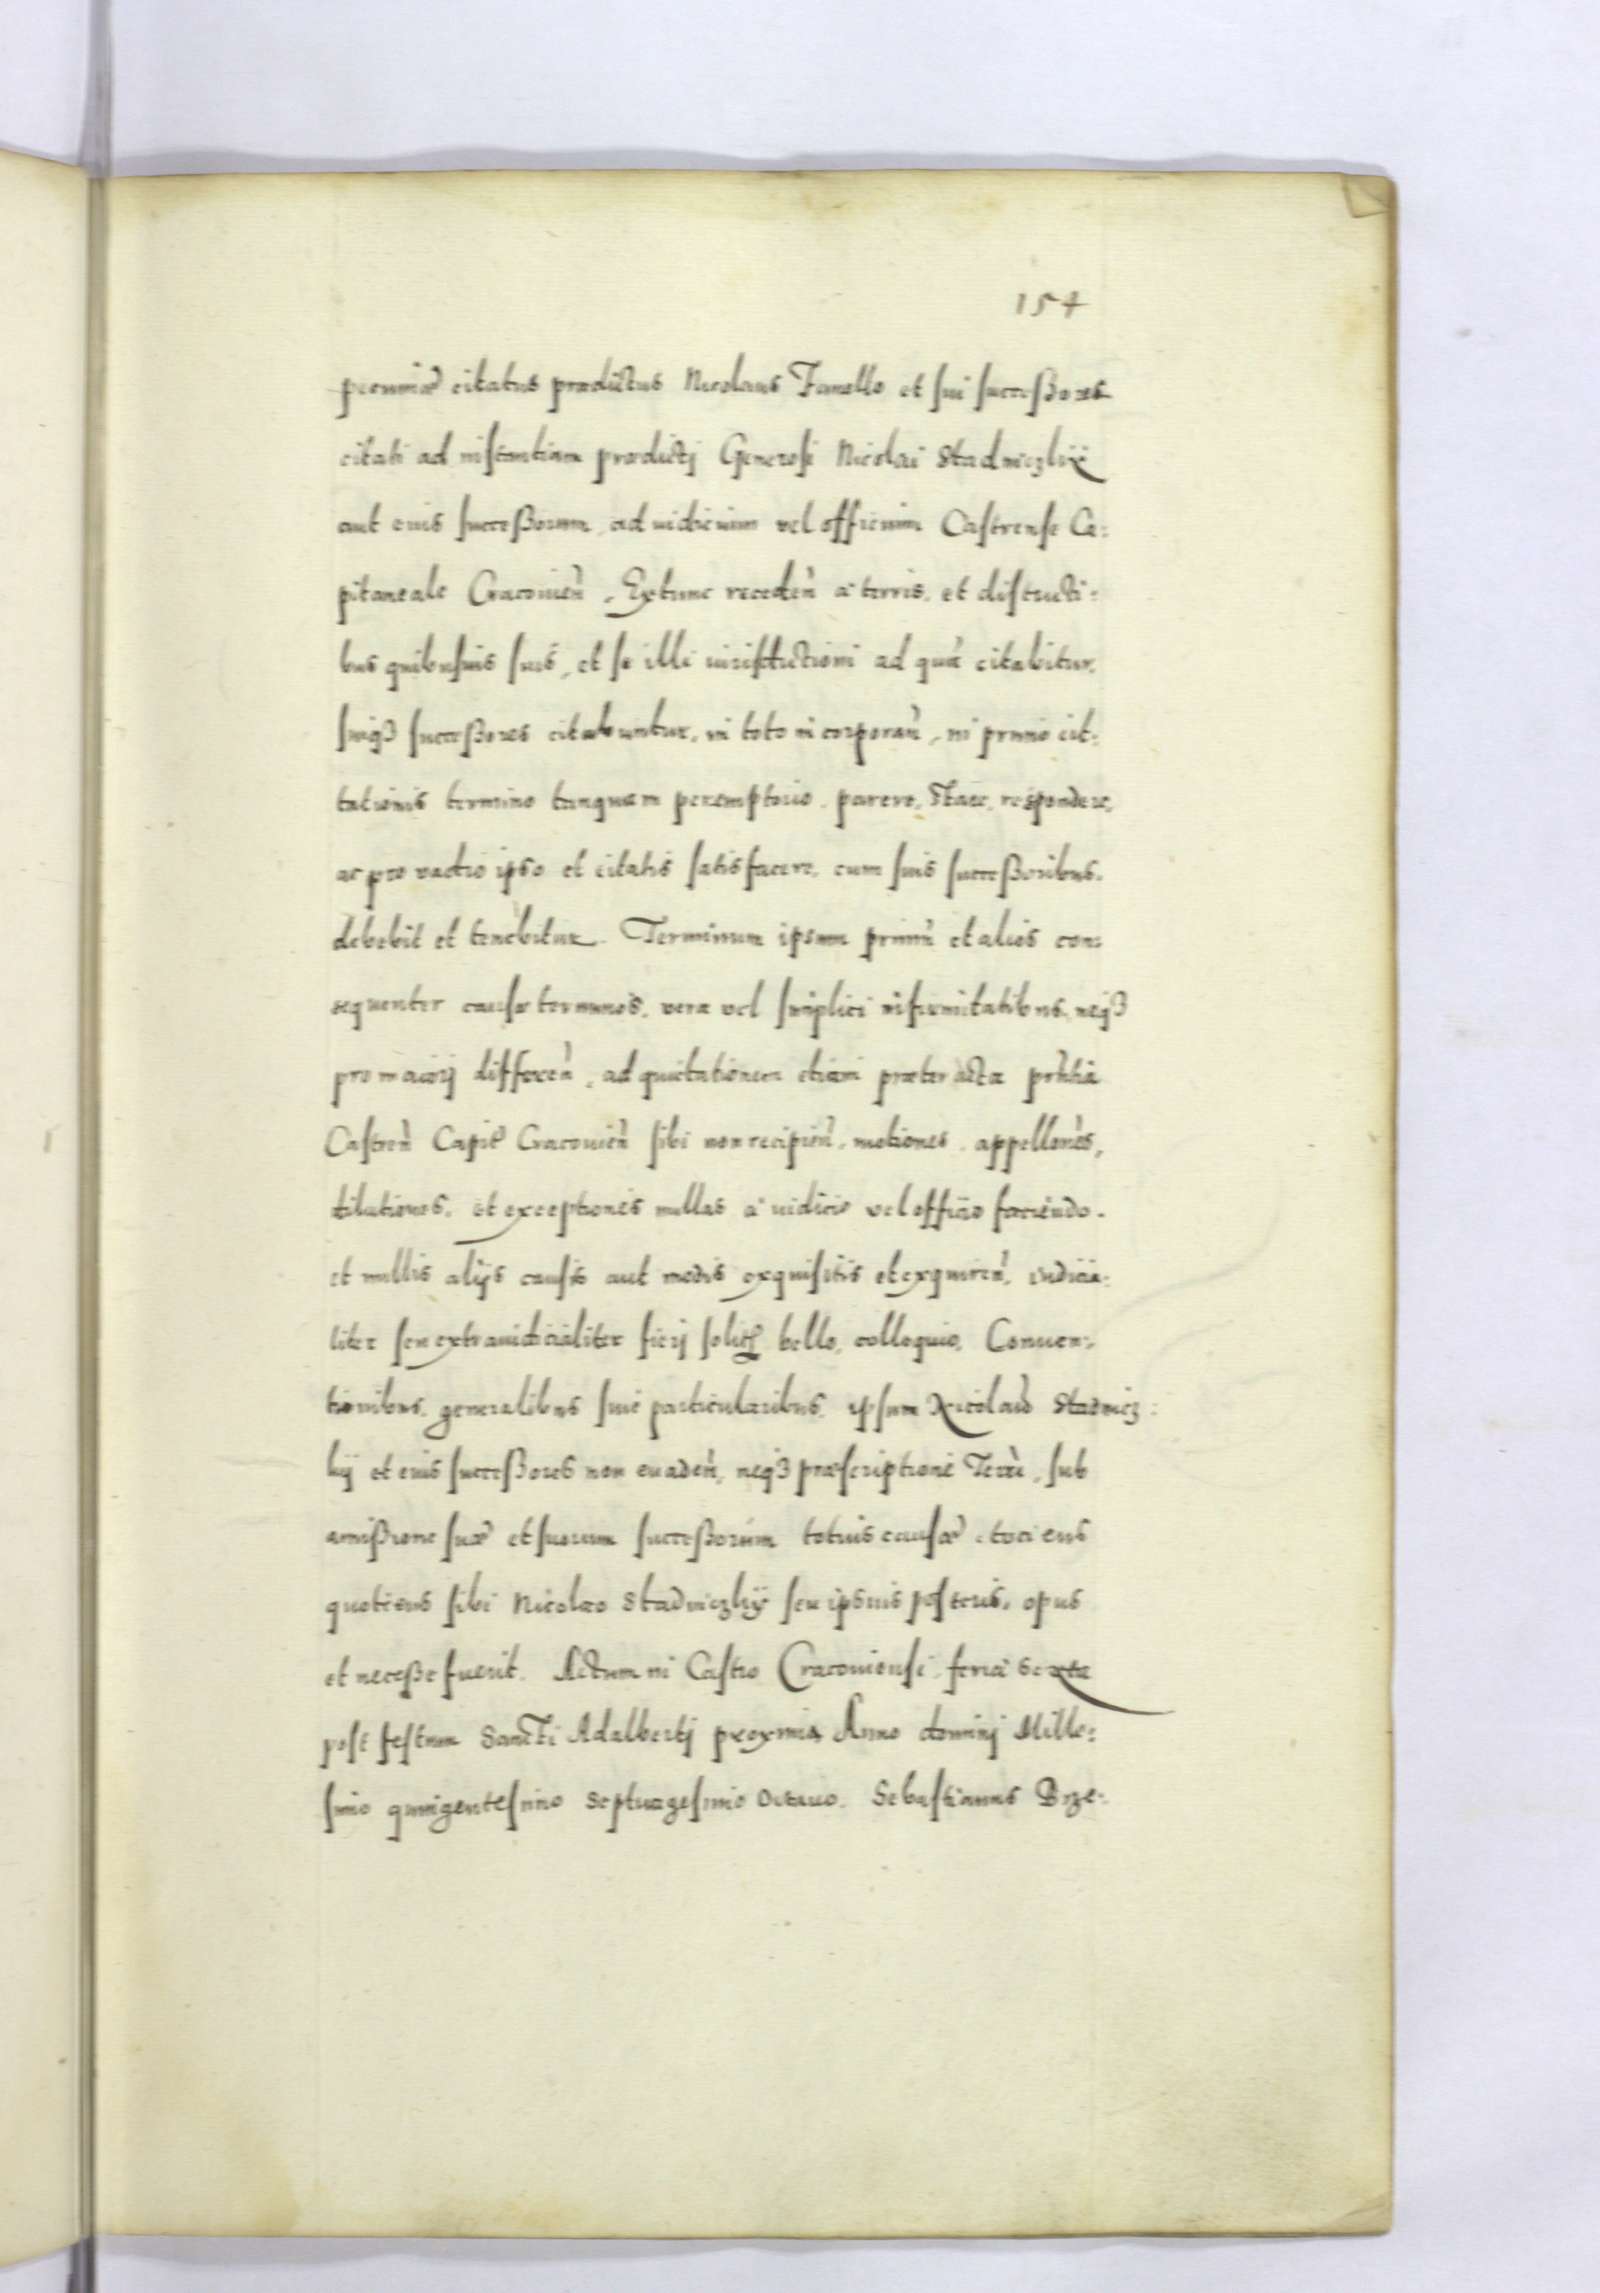 154
pecuniæ citatus prædictus Nicolaus Fanello et sui successores
citati ad instantiam prædictj Generosi Nicolai Stadniczkij
aut eius successorum, ad iudicium vel officium Castrense Ca:
pitaneale Cracouien̄, Extunc receden̄ a terris, et districti:
bus quibusuis suis, et se illi iurisdictioni ad quā citabitur,
suiq3 successores citabuntur, in toto incorporan̄, in primo cit:
tationis termino tanquam peremptorio, parere, stare, respondere,
ac pro vadio ipso et citatis satisfacere, cum suis successoribus.
debebit et tenebitur. Terminum ipsum primū et alios con:
sequenter causæ terminos, vera vel simplici infirmitatibus, neq3
pro maiorj differen̄, ad quietationem etiam præter acta prn̄tia
Castren̄ Capit Cracouien̄ sibi non recipien̄, motiones, appellon̄es,
dilationes, et exceptiones nullas a iudicio vel officio faciendo.
et nullis alijs causis aut modis exquisitis et exquiren̄, iudicia:
liter seu extraiudicialiter fierj solit bello, colloquio, Conuen:
tionibus, generalibus siue particularibus, ipsum Nicolaū Stadnicz:
kij et eius successores non euaden̄, neq3 præscriptione Terræ, sub
amissione suæ et suorum successorum totius causæ, tociens
quotiens sibi Nicolao Stadniczkij seu ipsius posteris, opus
et necesse fuerit. Actum in Castro Cracouiensi, feria sexta
post festum Sancti Adalbertj proxima Anno dominj Mille:
simo quingentesimo septuagesimo octauo. Sebastianus Brze: